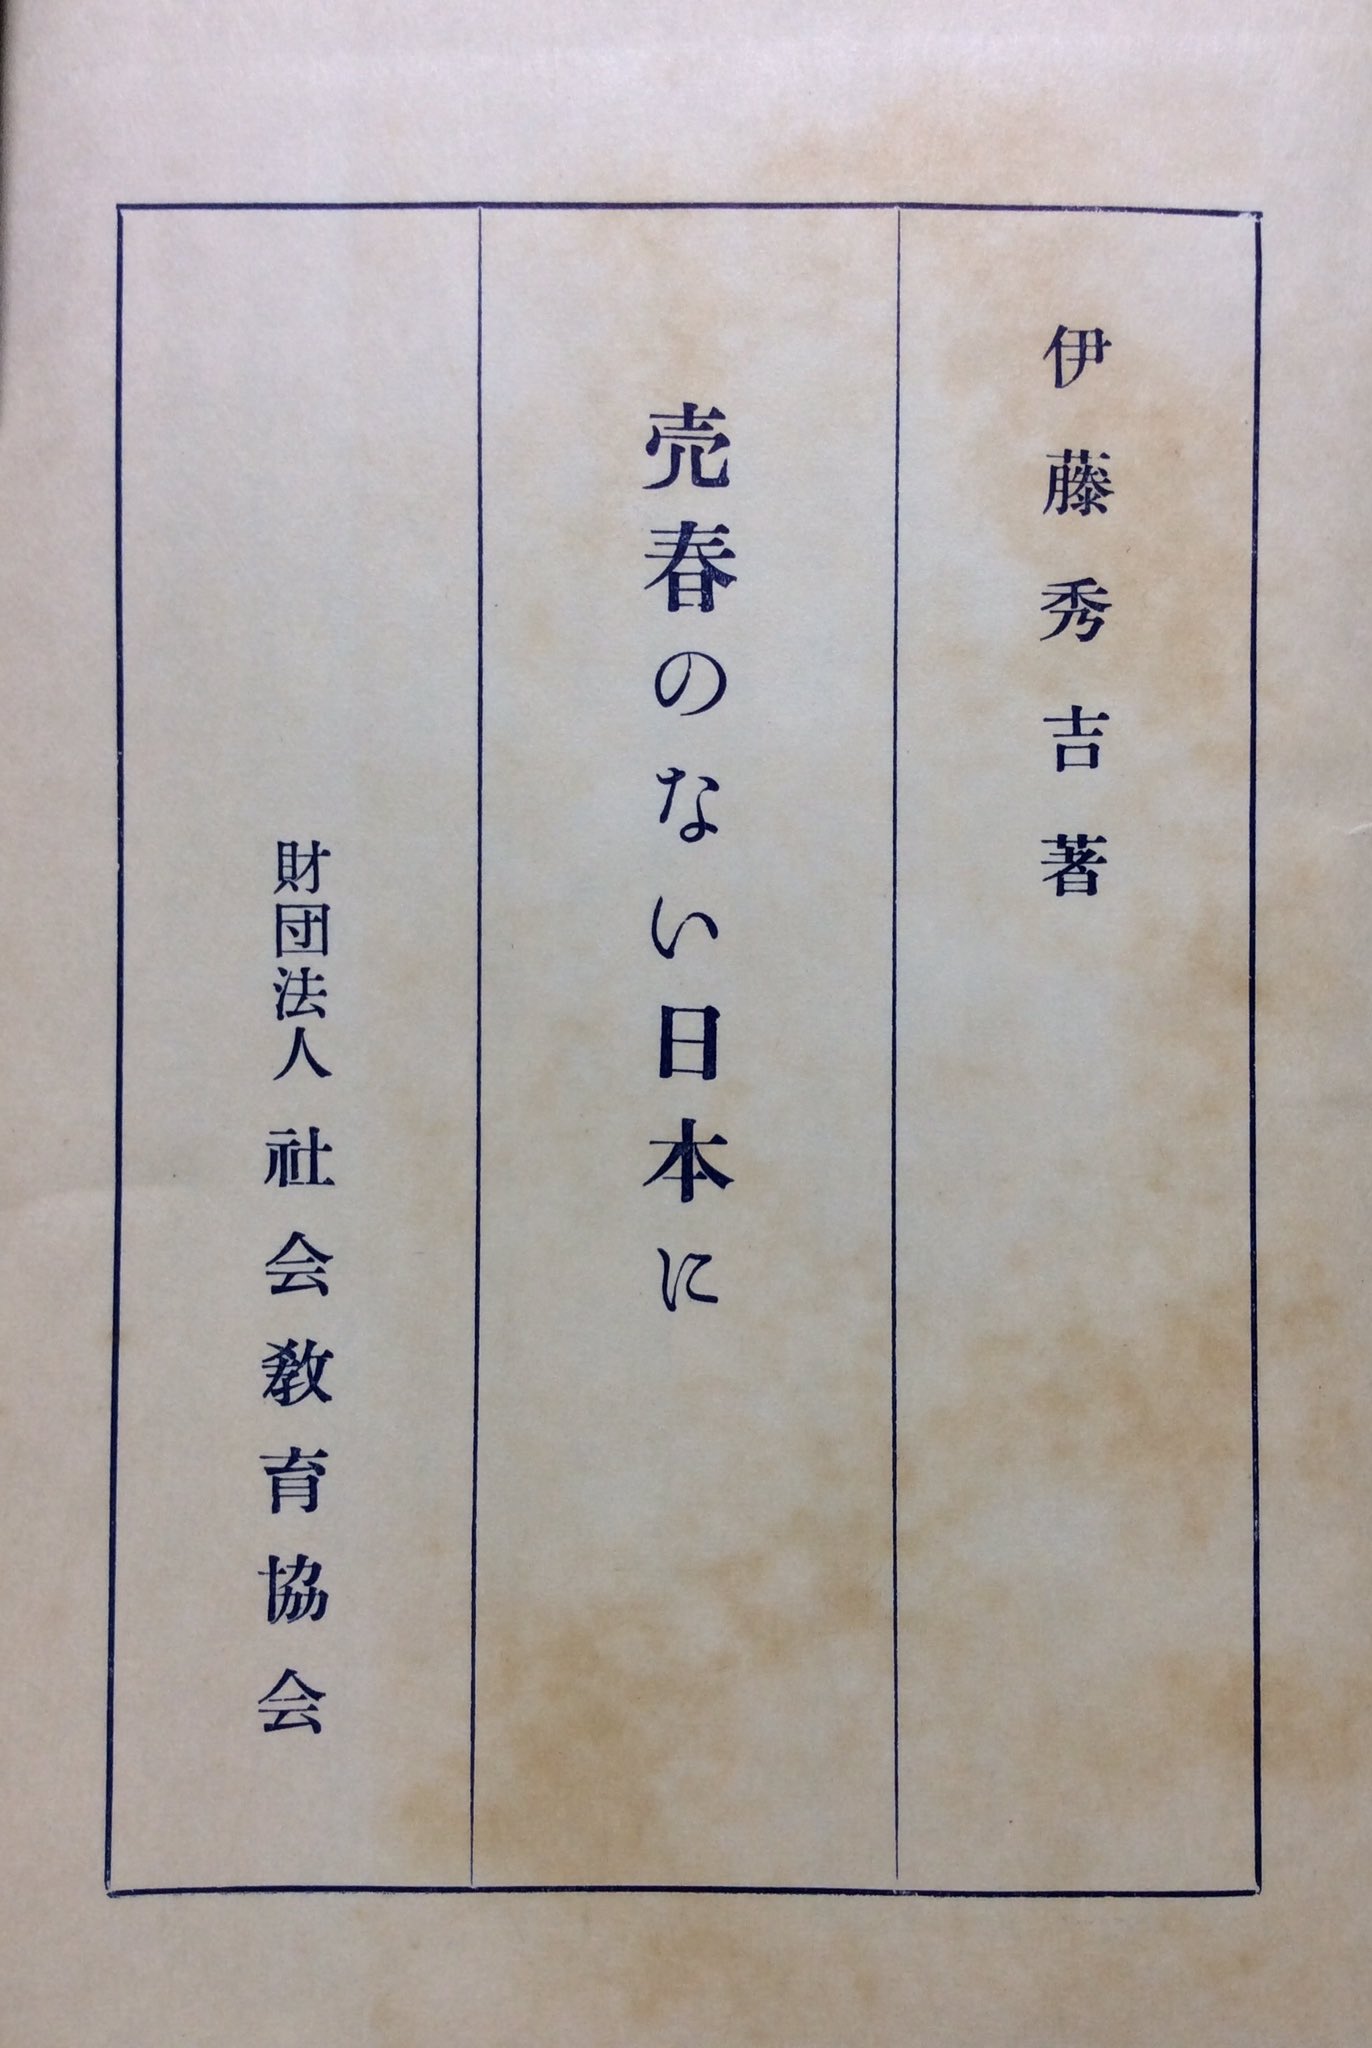 伊藤秀吉著
売春のない日本に
財団法人 社会教育協会